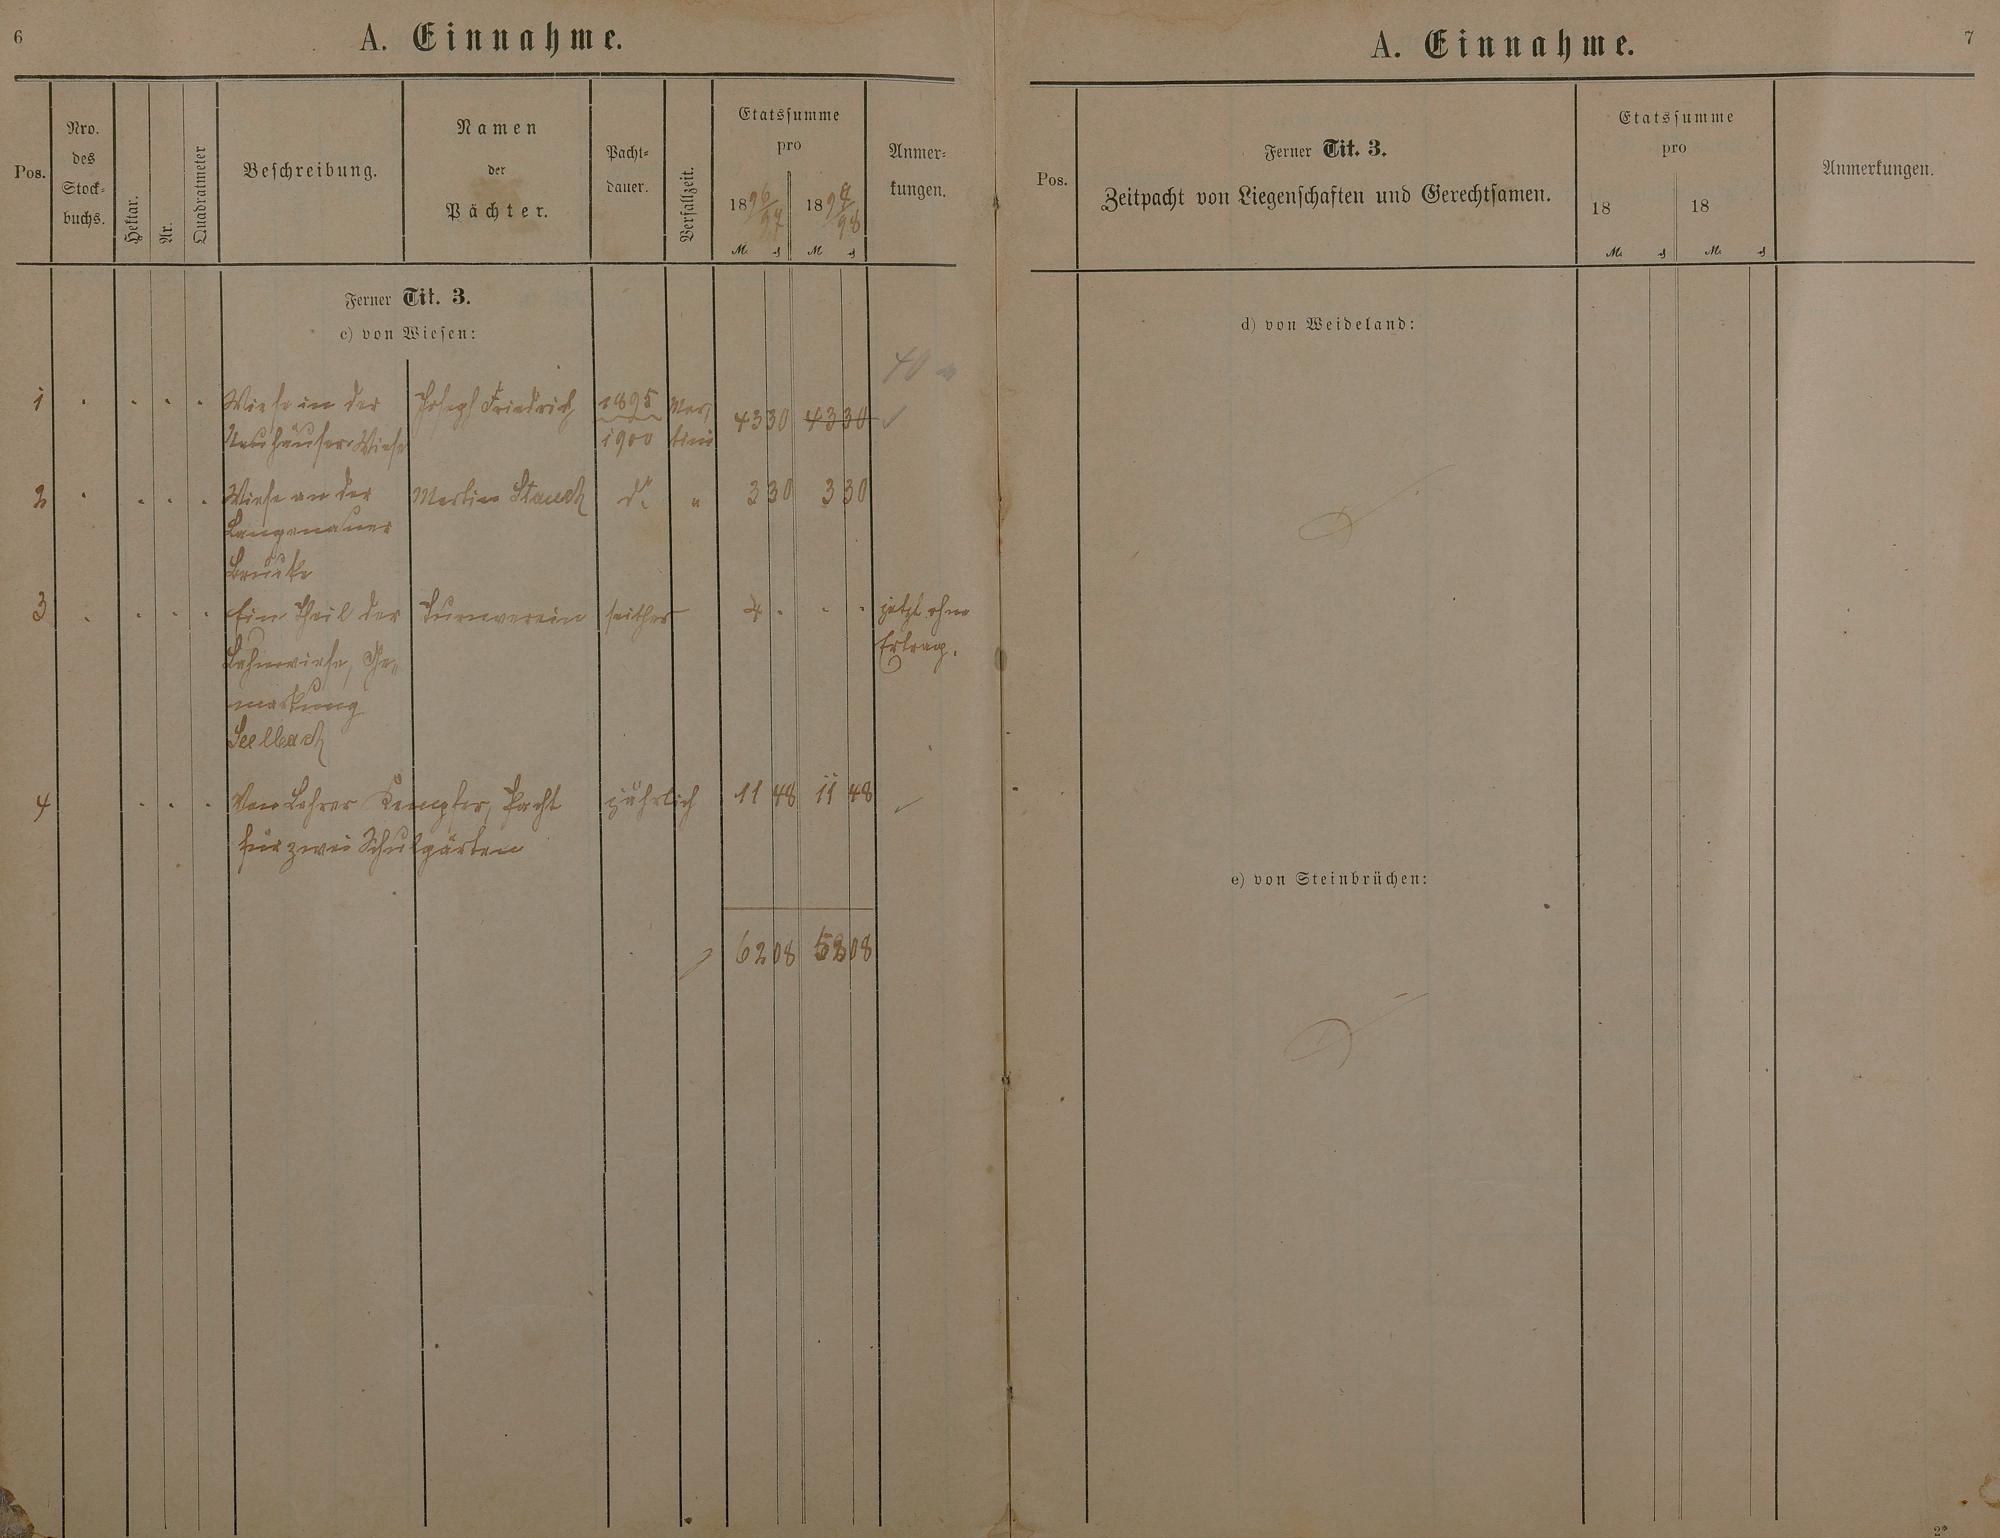 6
A. Einnahme.
Pos.
Nro.
des
Stock-
buchs.
Hektar.
Ar.
Quadratmeter
Beschreibung.
Namen
der
Pächter.
Pacht-
dauer.
Verfallzeit.
Etatssumme
pro
1896/97 1897/98
M. ₰ M. ₰
Anmer-
kungen.
Ferner Tit. 3.
c) von Wiesen:
40 "
1 . . . . Wiese in der Joseph Friedrich 1895 Mar, 43 30 43 30
Neuhäuser Wiese 1900 tini
2 . . . . Wiese an der Martin Stauch do. " 3 30 3 30
Langenauer
Brücke
3 . . . . Ein Theil der Turnverein seither 4 . . . jetzt ohne
Lahnwiese, Ge- Ertrag.
markung
Seelbach
4 . . . Von Lehrer Kempfer, Pacht jährlich 11 48 11 48
für zwei Schulgärten
62 08 58 08
7
A. Einnahme.
Pos.
Ferner Tit. 3.
Zeitpacht von Liegenschaften und Gerechtsamen.
Etatssumme
pro
18 18
M. ₰ M. ₰
Anmerkungen.
d) von Weideland:
e) von Steinbrüchen:
2*